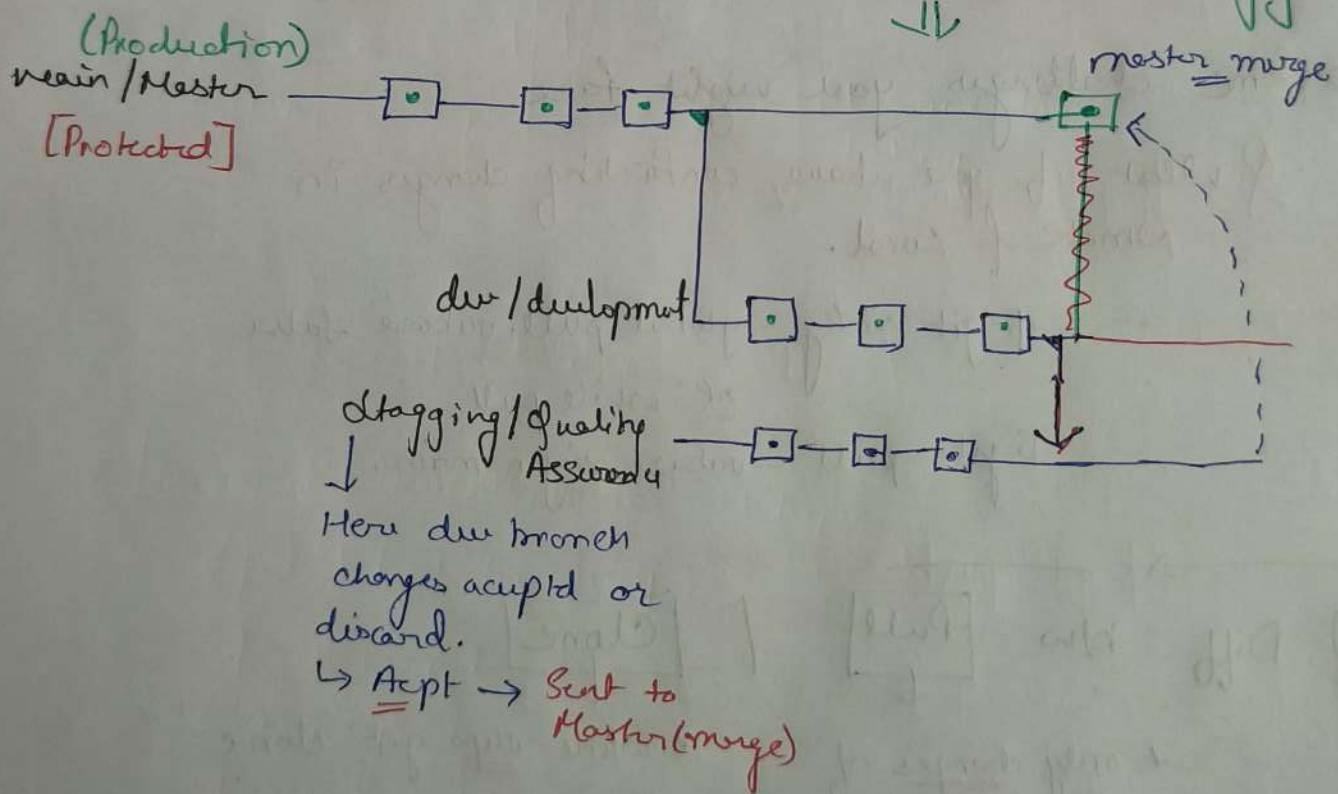 (Production)
main/Master
[Protected]
master merge
dev/development
Stagging/Quality
Assurance
Here dev branch
changes accepted or
discard.
↳ Acpt → Sent to
Master (merge)